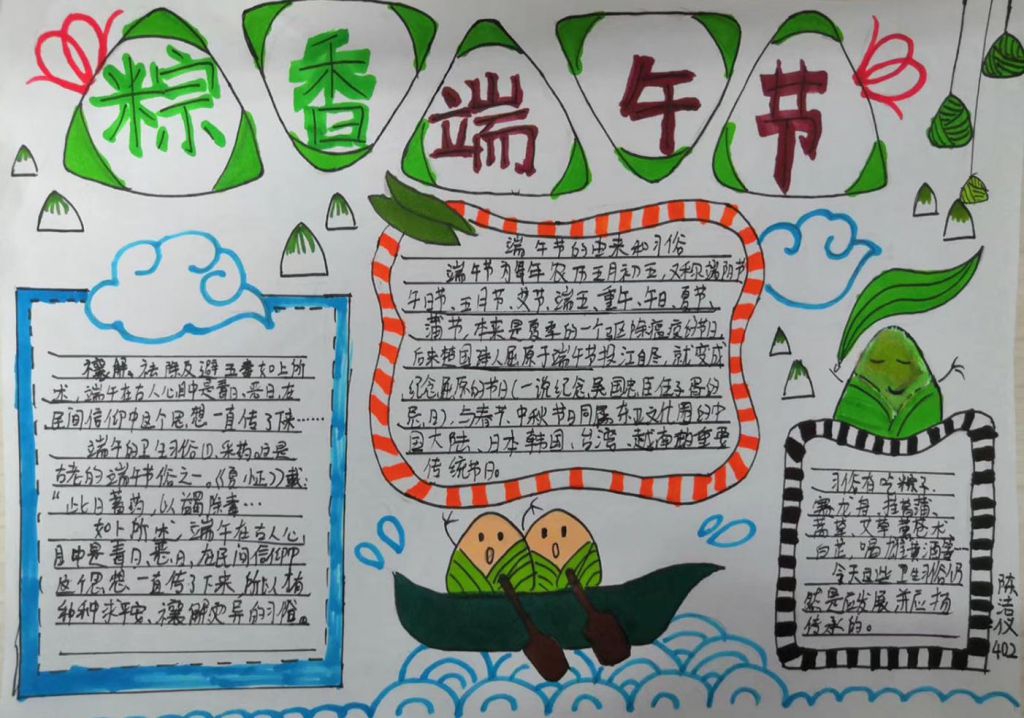 粽香端午节
端午节的由来和习俗
端午节为每年农历五月初五,又称端阳节
午日节、五月节、艾节、端五、重午、午日、夏节、
蒲节,本来是夏季的一个驱除瘟疫的节日,
后来楚国诗人屈原于端午节投江自尽,就变成
纪念屈原的节日(一说纪念吴国忠臣伍子胥的
忌日)、与春节、中秋节日同属东亚文化圈的中
国大陆、日本韩国、台湾、越南的重要
传统节日。
禳解、祛除及避五毒如上所
述,端午在古人心目中是毒日、恶日,在
民间信仰中这个思想一直传了下来……
端午的卫生习俗(1).采药,这是
古老的端午节俗之一。《夏小正》载:
“此日蓄药,以蠲除毒…
如上所述,端午在古人心
目中是毒日、恶日,在民间信仰中
这个思想一直传了下来,所以才有
种种求平安、禳解灾异的习俗。
习俗有吃粽子,
赛龙舟,挂菖蒲、
蒿草、艾草薰苍术
白芷,喝雄黄酒等…
今天这些卫生习俗仍
然是应发展并应扬
传承的。
陈洁仪
402